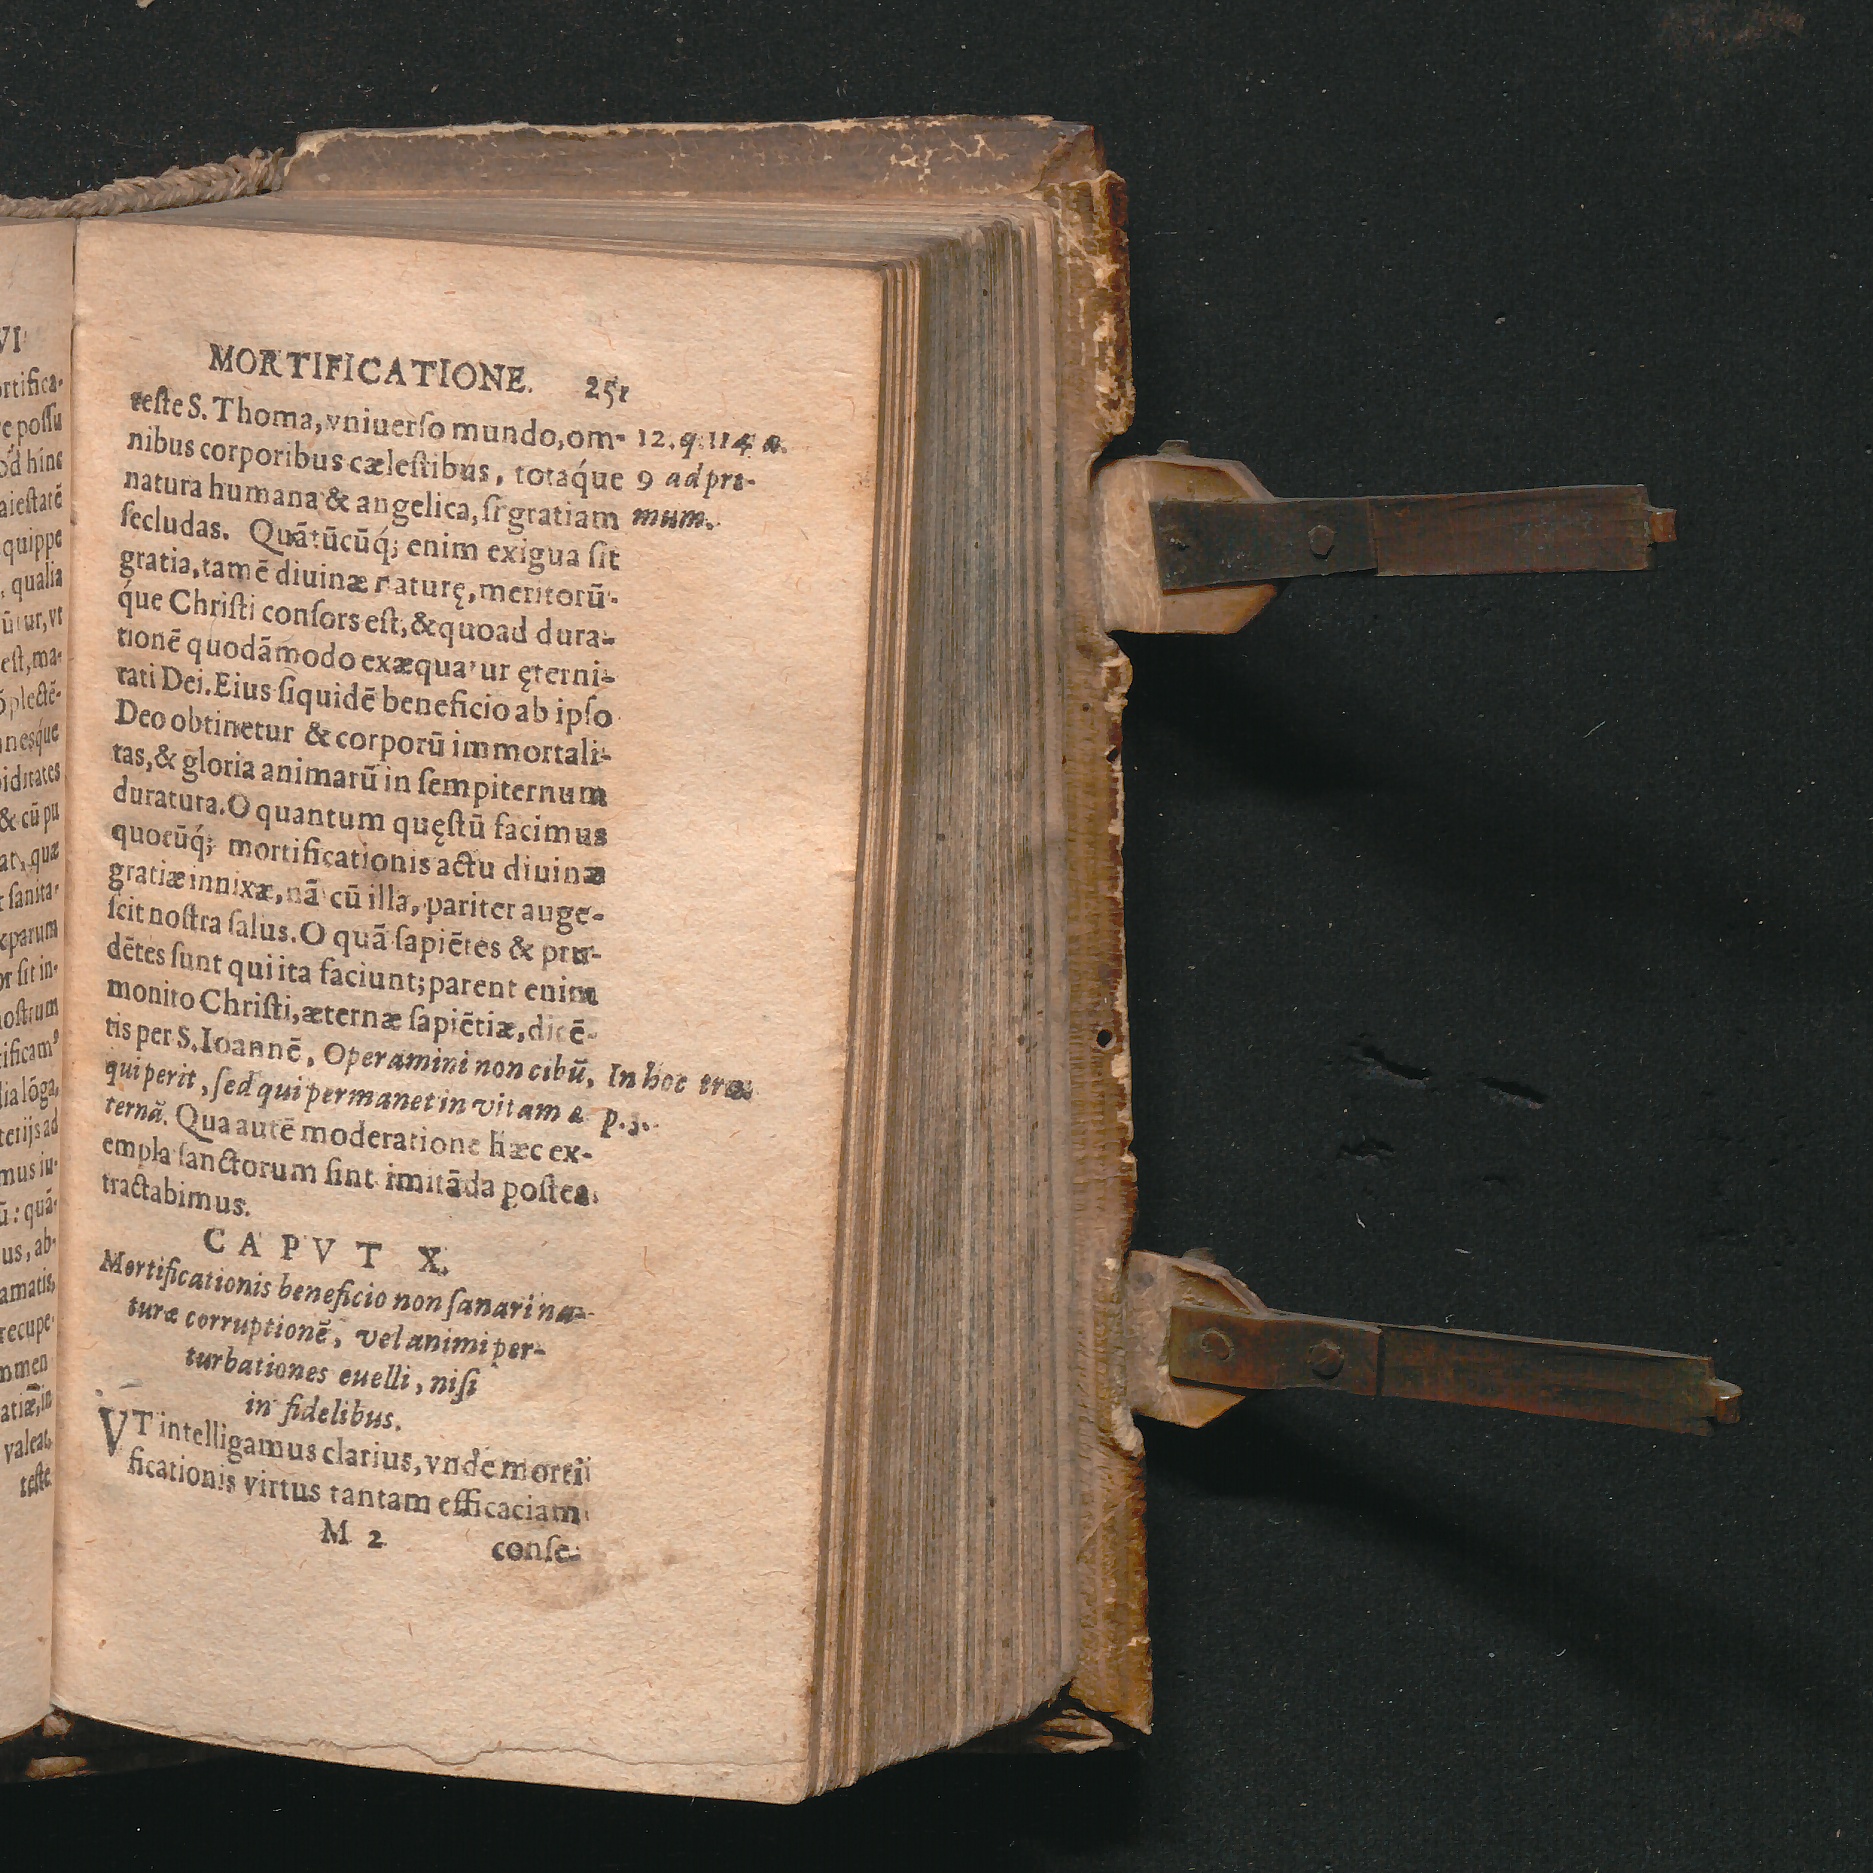 VI
ortifica-
re possu
od hinc
aiestatē
quippe
, qualia
ūtur, vt
est, ma-
ōplectē-
nesq́ue
iditates
& cū pu
at, quæ
sanita-
parum
or sit in-
nostrum
lia lōga,
terijs ad
mus iu-
ū: quā-
us, ab-
amatis,
recupe-
mmen
atiæ, in
valeat,
teste
MORTIFICATIONE. 251
teste S. Thoma, vniuerſo mundo, om- 12. q. 114 a.
nibus corporibus cæleſtibus, totaq́ue 9 ad pri-
natura humana & angelica, ſi gratiam mum.
ſecludas. Quātūcūq́; enim exigua ſit
gratia, tamē diuinæ naturę, meritorū-
q́ue Chriſti conſors eſt, & quoad dura-
tionē quodāmodo exæquatur ęterni-
tati Dei. Eius ſiquidē beneficio ab ipſo
Deo obtinetur & corporū immortali-
tas, & gloria animarū in ſempiternum
duratura. O quantum quęſtū facimus
quotūq́; mortificationis actu diuinæ
gratiæ innixæ, nā cū illa, pariter auge-
ſcit noſtra ſalus. O quā ſapiētes & pru-
dētes ſunt qui ita faciunt; parent enim
monito Chriſti, æternæ ſapiētiæ, dicē-
tis per S. Ioannē, Operamini non cibū, In hoc tra.
qui perit, ſed qui permanet in vitam æ p. 3.
ternā. Qua autē moderatione hæc ex-
empla ſanctorum ſint imitāda poſtea
tractabimus.
CAPVT X.
Mortificationis beneficio non ſanari na-
turæ corruptionē, vel animi per-
turbationes euelli, niſi
in fidelibus.
VT intelligamus clarius, vnde morti
ficationis virtus tantam efficaciam
M 2 conſe-